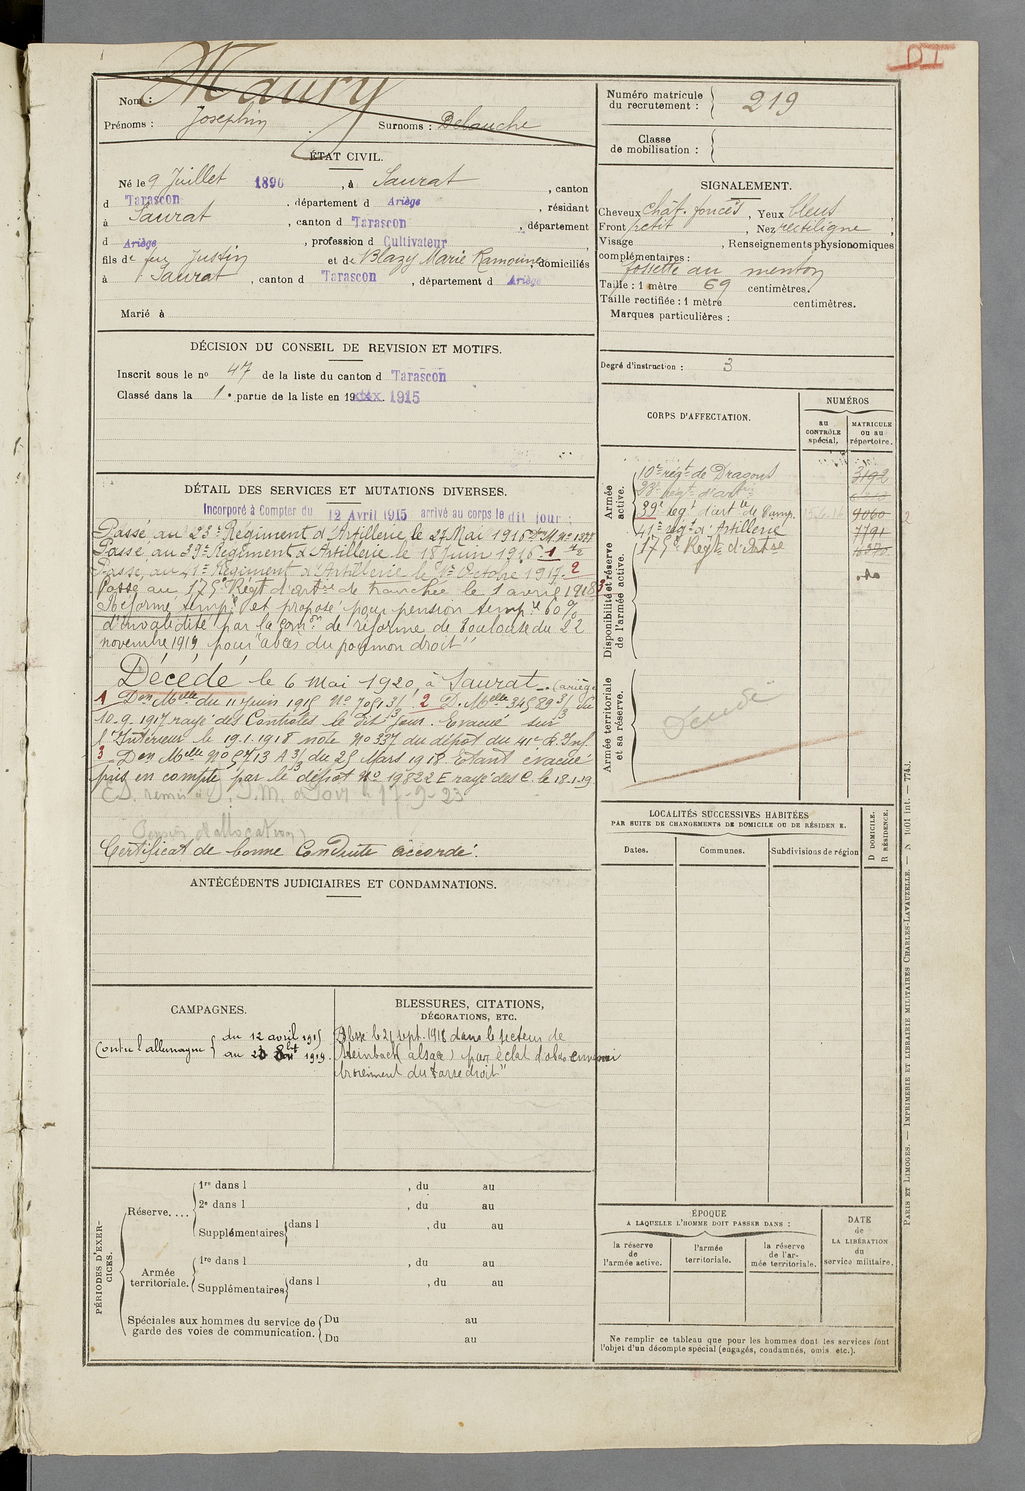 DI
Nom : Maury
Prénoms : Josephin Surnoms : Delauche
ÉTAT CIVIL.
Né le 9 Juillet 1896, à Saurat, canton
d Tarascon, département d Ariège, résidant
à Saurat, canton d Tarascon, département
d Ariège, profession d Cultivateur,
fils de feu Justin et de Blazy Marie Ramounn domiciliés
à Saurat, canton d Tarascon, département d Ariège
Marié à
DÉCISION DU CONSEIL DE REVISION ET MOTIFS.
Inscrit sous le no 47 de la liste du canton d Tarascon
Classé dans la 1e partie de la liste en 19 1915
DÉTAIL DES SERVICES ET MUTATIONS DIVERSES.
Incorporé à Compter du 12 Avril 1915 arrivé au corps le dit jour ;
Passé au 23e Régiment d'Artillerie le 27 Mai 1916
Passé au 39e Régiment d'Artillerie le 18 Juin 1916. 1
Passé au 41e Régiment d'Artillerie le 1er Octobre 1917. 2
Passé au 175e Régt d'artie de tranchée le 1 avril 1918 3
Réformé tempre et proposé pour pension tempre 60%
d'invalidité par la Comon de réforme de Toulouse du 22
novembre 1919 pour "abcès du poumon droit"
Décédé le 6 Mai 1920, à Saurat (ariège
1 Don Melle du 11 Juin 1915 No 7051 3/ 2 D. Melle 34589 3/3 du
10-9-1917 rayé des Contrôles le dit jour. Evacué sur
l'Intérieur le 19.1.1918 note No 337 du dépôt du 41e R.
3 Don Melle No 5713 A 3/3 du 25 Mars 1918 Etant évacué
pris en compte par le dépôt No 19822 E rayé des C. le 18-1-19
17-9-23
d'allocation
Certificat de bonne Conduite accordé.
ANTÉCÉDENTS JUDICIAIRES ET CONDAMNATIONS.
CAMPAGNES.
Contre l'allemagne { du 12 avril 1915
au 1919.
BLESSURES, CITATIONS,
DÉCORATIONS, ETC.
Blessé le 21 sept. 1918 dans le secteur de
Steinbach (alsace) par éclat d'obus ennemi
du tarse droit"
PÉRIODES D'EXERCICES.
Réserve....
1re dans l , du au
2e dans l , du au
Supplémentaires dans l , du au
au
Armée
territoriale.
1re dans l , du au
Supplémentaires dans l , du au
au
Spéciales aux hommes du service de
garde des voies de communication.
Du au
Du au
Numéro matricule
du recrutement : 219
Classe
de mobilisation :
SIGNALEMENT.
Cheveux chât. foncés, Yeux bleus,
Front petit, Nez rectiligne,
Visage , Renseignements physionomiques
complémentaires :
fossette au menton
Taille : 1 mètre 69 centimètres.
Taille rectifiée : 1 mètre centimètres.
Marques particulières :
Degré d'instruction : 3
CORPS D'AFFECTATION.
NUMÉROS
au
CONTRÔLE
spécial.
MATRICULE
ou au
répertoire.
Armée
active.
10e régt de Dragons 3192
23e regt d'artrie
39e regt d'artie de Camp. 9060
41e regt d'Artillerie 7791
175e Régt d'Artie
Disponibilité et réserve
de l'armée active.
Armée territoriale
et sa réserve.
Décédé
LOCALITÉS SUCCESSIVES HABITÉES
PAR SUITE DE CHANGEMENTS DE DOMICILE OU DE RÉSIDEN E.
Dates.
Communes.
Subdivisions de région
D DOMICILE.
R RÉSIDENCE.
ÉPOQUE
A LAQUELLE L'HOMME DOIT PASSER DANS :
la réserve
de
l'armée active.
l'armée
territoriale.
la réserve
de l'ar-
mée territoriale.
DATE
de
LA LIBÉRATION
du
service militaire.
Ne remplir ce tableau que pour les hommes dont les services font
l'objet d'un décompte spécial (engagés, condamnés, omis etc.).
PARIS ET LIMOGES. — IMPRIMERIE ET LIBRAIRIE MILITAIRES CHARLES-LAVAUZELLE. — N 1001 int. — 7743.